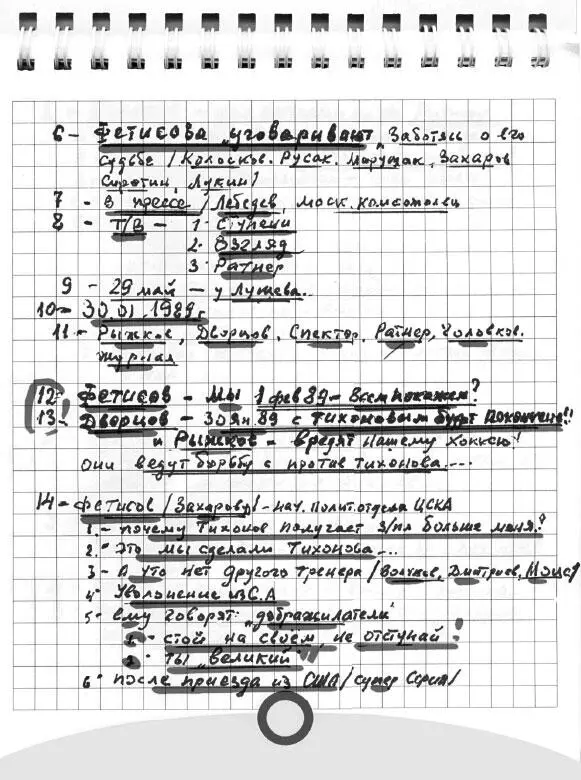 6 - Фетисова "уговаривают", Заботясь о его
судьбе / Колосков, Русак, Марущак, Захаров
Сыротин, Лукин /
7 - в прессе / Лебедев, моск. комсомолец
8 - Т/В - 1. Ступени
2. Взгляд
3. Ратнер
9 - 29 май - у Лушева...
10 - 30.01.1989 г.
11 - Рыжков, Дворцов, Спектор, Ратнер, Головков.
журнал
12 - Фетисов - мы 1 фев 89 - Всем покажем?
13 - Дворцов - 30 Ян. 89 с Тихоновым будет покончено!!
и Рыжков - вредят нашему хоккею!
они ведут борьбу с против Тихонова...
14 - Фетисов / Захарову / - нач. полит. отдела ЦСКА
1. - почему Тихонов получает з/пл больше меня?
2. Это мы сделали Тихонова...
3 - А что нет другого тренера / Волчков, Дмитриев, /
4. Увольнение из С.А
5 - ему говорят: "дображилатели"
1 - стой на своём не отступай!
2 - ты "великий"
6. после приезда из США / супер Серия /